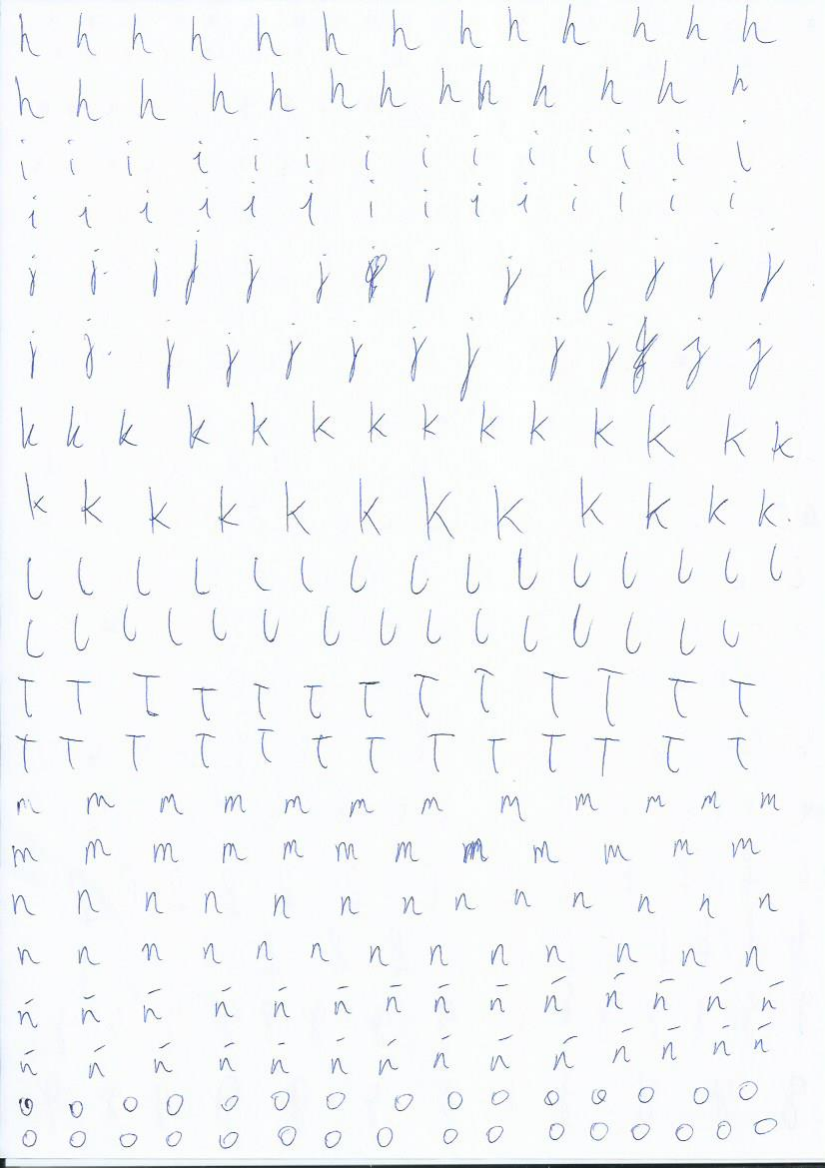 h h h h h h h h h h h h h
h h h h h h h h h h h h h
i i i i i i i i i i i i i i
i i i i i i i i i i i i i i
j j j j j j j j j j j j
j j j j j j j j j j j j
k k k k k k k k k k k k k k
k k k k k k k k k k k k.
l l l l l l l l l l l l l l l
l l l l l l l l l l l l l l l
T T T T T T T T T T T T T
T T T T T T T T T T T T T
m m m m m m m m m m m m
m m m m m m m m m m m m
n n n n n n n n n n n n n
n n n n n n n n n n n n n
ñ ñ ñ ñ ñ ñ ñ ñ ñ ñ ñ ñ ñ ñ
ñ ñ ñ ñ ñ ñ ñ ñ ñ ñ ñ ñ ñ ñ
o o o o o o o o o o o o o o o
o o o o o o o o o o o o o o o o